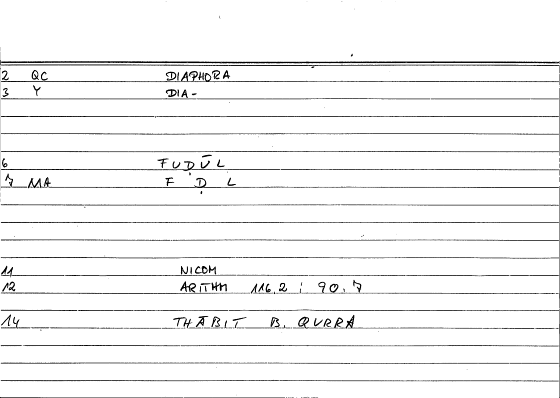 2 QC DIAPHORA
3 Y DIA-
6 FUḌŪL
7 MA F Ḍ L
11 NICOM
12 ARITHM 116,2 ; 90,7
14 THĀBIT B. QURRA